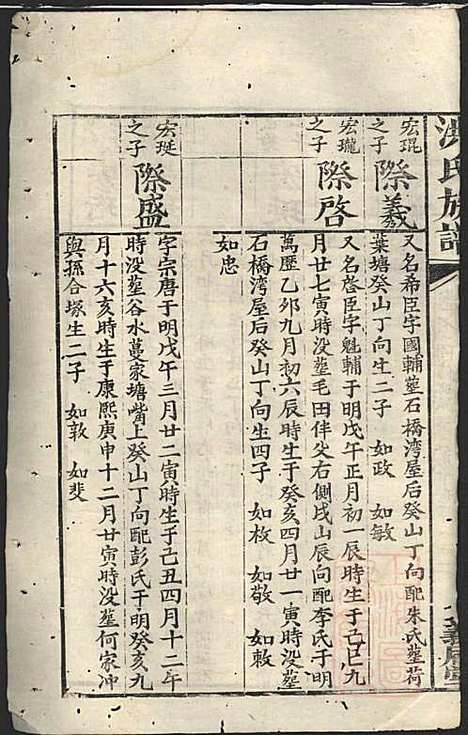 洪氏族譜
宏琨之子
際義
又名希臣字國輔塟石橋湾屋后癸山丁向配朱氏塟荷
葉塘癸山丁向生二子 如政 如敏
宏瓏之子
際啓
又名啓臣字魁輔于明戊午正月初一辰時生于己巳九
月廿七寅時没塟毛田伴父右側戌山辰向配李氏于明
萬歷乙夘九月初六辰時生于癸亥四月廿一寅時没塟
石橋湾屋后癸山丁向生四子 如枚 如敬 如敕
如忠
宏珽之子
際盛
字宗唐于明戊午三月廿二寅時生于己丑四月十二午
時没塟谷水蔓家塘觜上癸山丁向配彭氏于明癸亥九
月十六亥時生于康熙庚申十二月廿寅時没塟何家冲
與孫合塚生二子 如敦 如斐